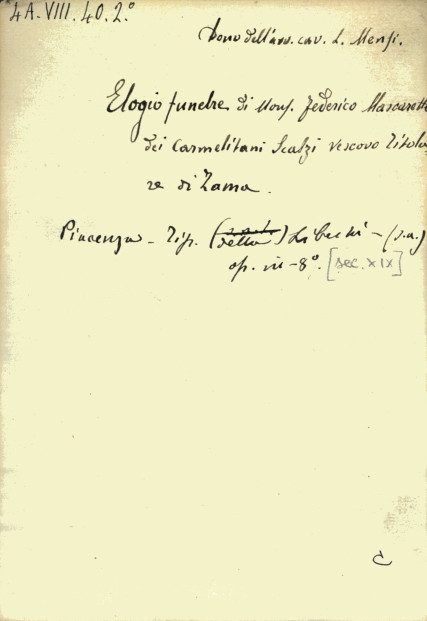 4A.VIII.40.2.°
Dono dell'avv. cav. L. Mensi.
Elogio funebre di Mons. Federico
dei Carmelitani Scalzi Vescovo Titola
re di Zama.
Piacenza - Tip. ( della ) - (s.a.)
op. in-8°. [sec. XIX]
C